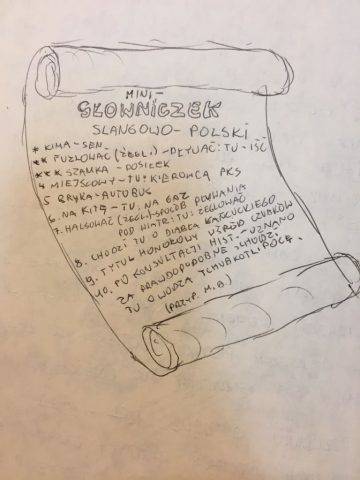 MINI-
SŁOWNICZEK
SLANGOWO-POLSKI
* KIMA-SEN
** PUZLOWAĆ (ŻEGL.) - PŁYWAĆ: TU-IŚĆ
*** SZAMKA-POSIŁEK
4 MIEJSCOWY-TU: KIEROWCA PKS
5 BRYKA-AUTOBUS
6. NA KITĘ-TU, NA GAZ
7. HALSOWAĆ (ŻEGL.)-SPOSÓB PŁYWANIA
POD WIATR: TU:
8. CHODZI TU O DIABŁA ŁAŃCUCKIEGO
9. TYTUŁ HONOROWY WŚRÓD CZUBKÓW
10. PO KONSULTACJI HIST.-UZNANO
ZA PRAWDOPODOBNE, CHODZI
TU O WODZA
(PRZYP. M.B.)